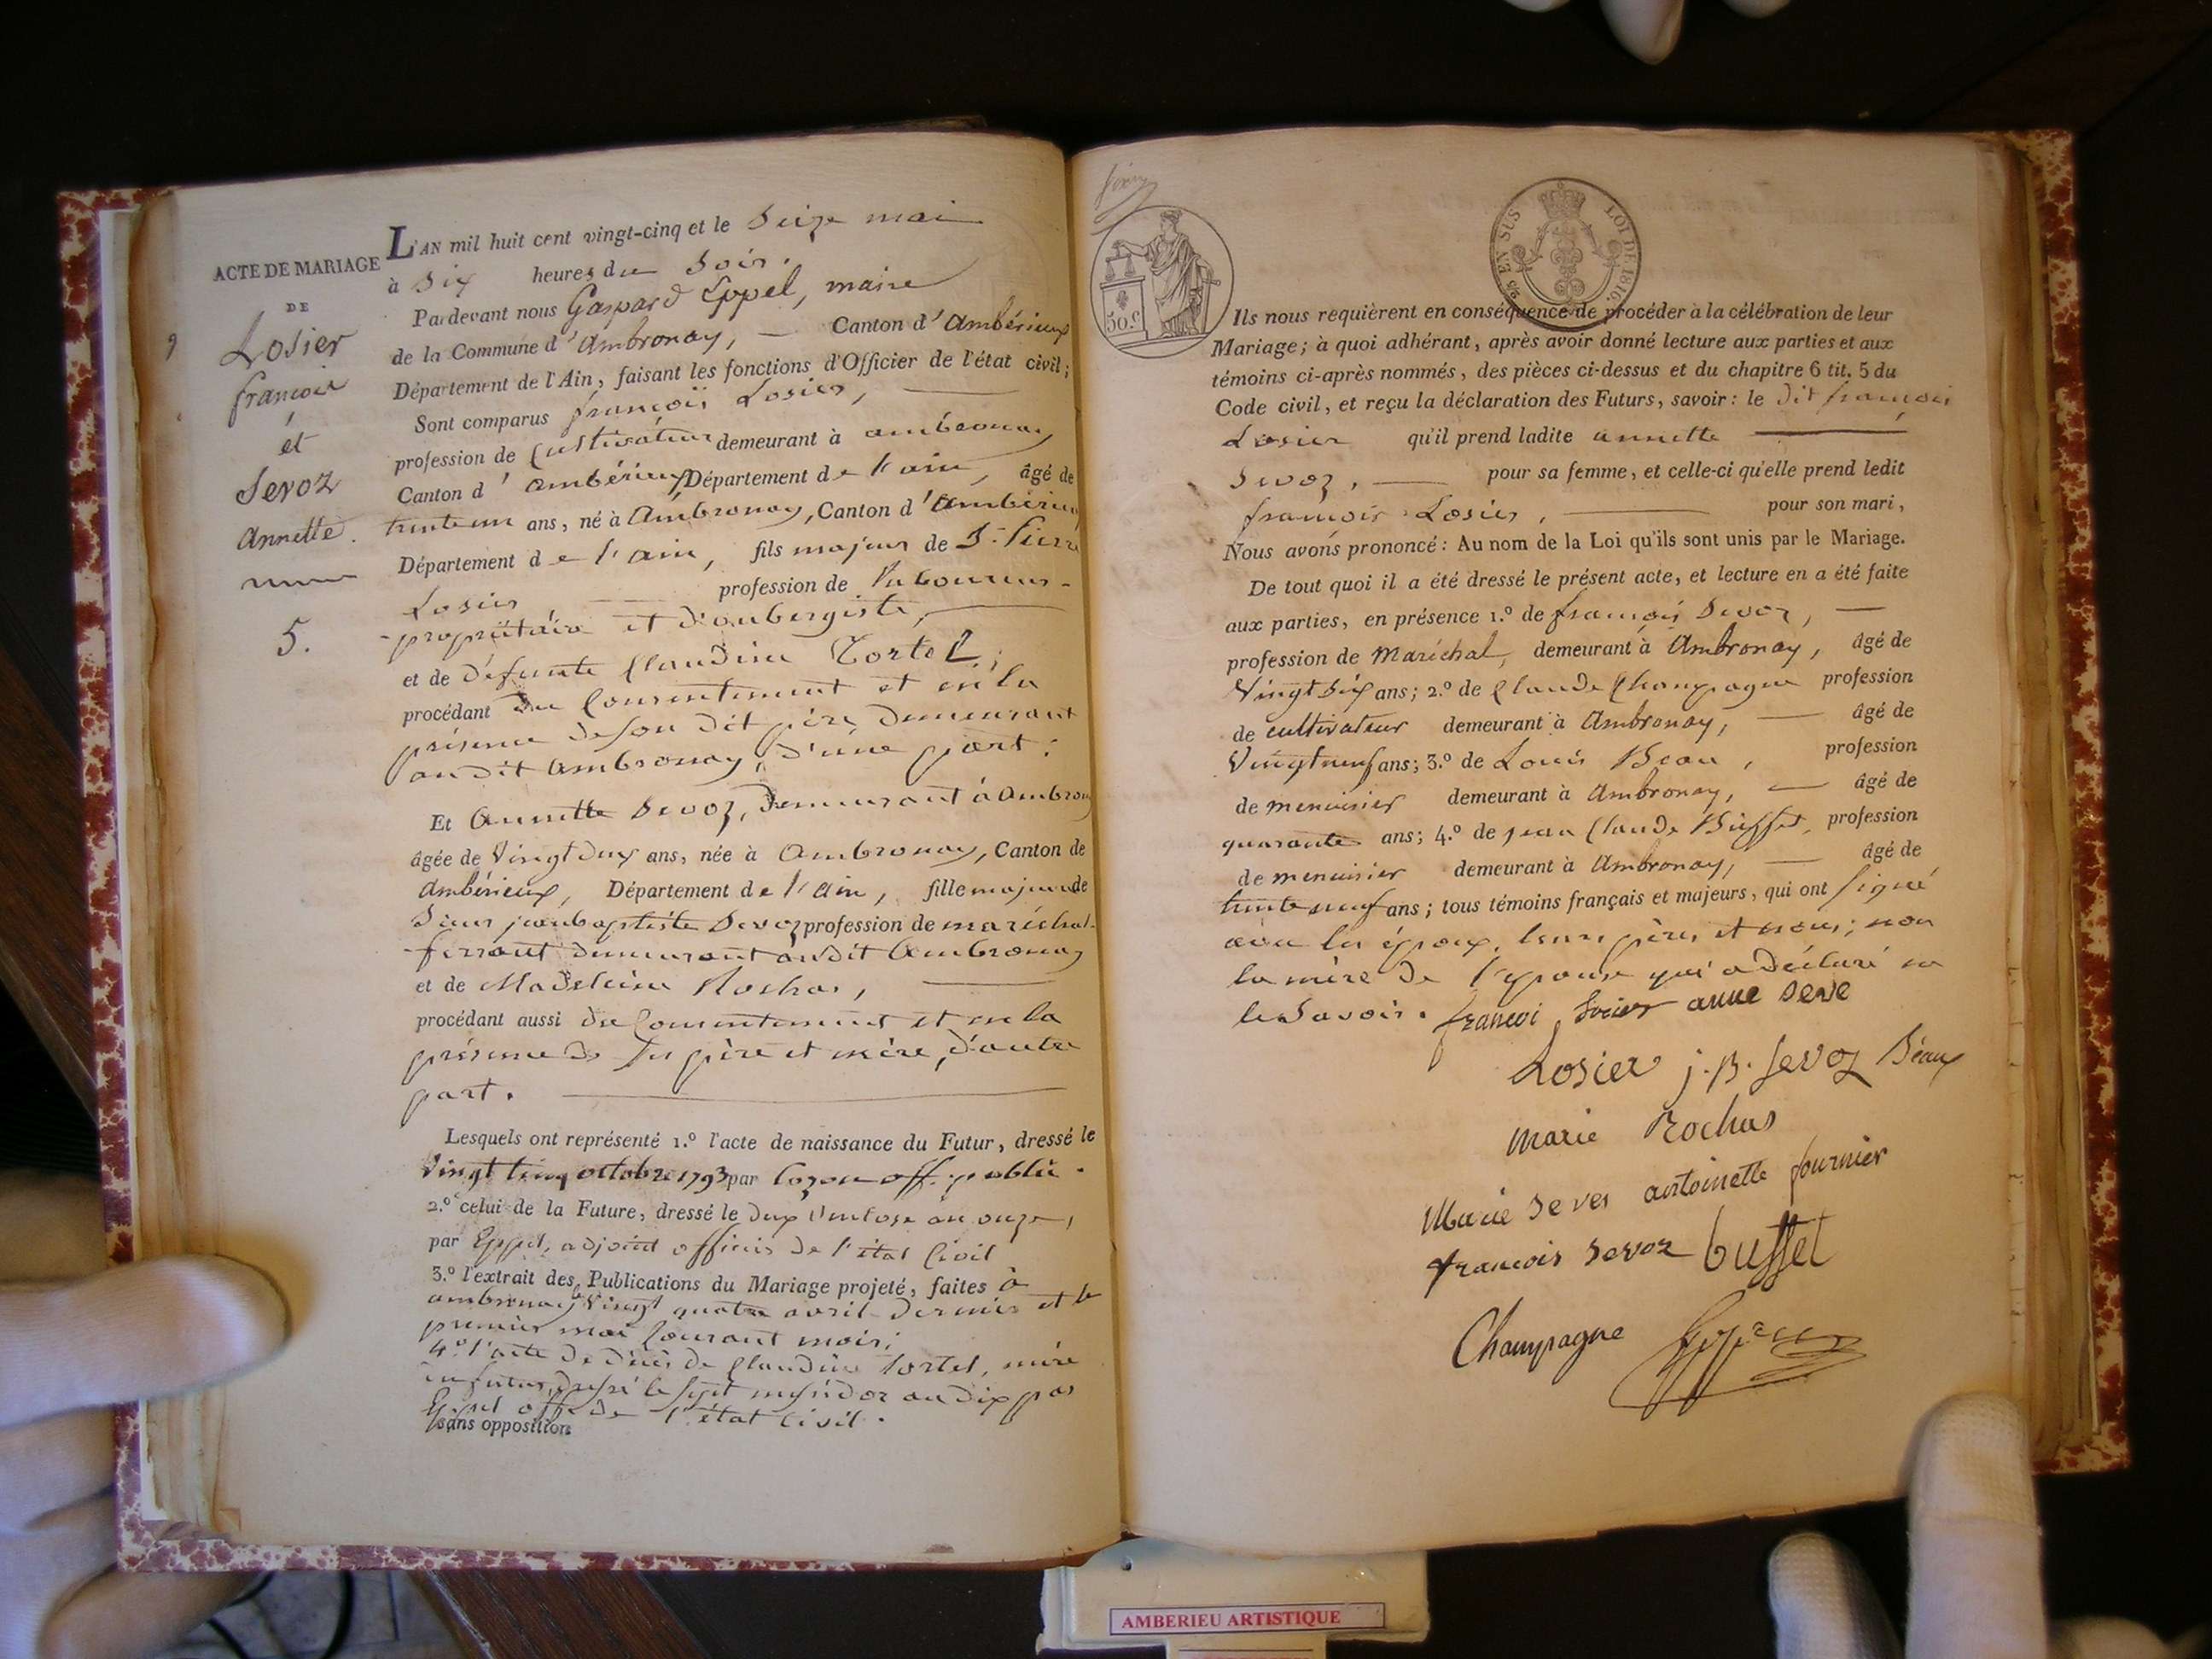 L'AN mil huit cent vingt-cinq et le Seize mai
à Six heures du Soir.
Pardevant nous Gaspard Eppel, maire
de la Commune d'Ambronay, — Canton d'Ambérieux
Département de l'Ain, faisant les fonctions d'Officier de l'état civil;
Sont comparus françois Losier,
profession de Cultivateur demeurant à ambronay
Canton d'ambérieux Département de l'ain, âgé de
trente un ans, né à Ambronay, Canton d'ambérieux
Département de l'ain, fils majeur de Sr. Pierre
Losier profession de laboureur-
propriétaire et d'aubergiste,
et de défunte Claudine Tortel,
procédant du Consentement et en la
présence de son dit père demeurant
au dit Ambronay, d'une part;
Et Annette Sevoz, demeurant à Ambronay
âgée de Vingt deux ans, née à Ambronay, Canton de
Ambérieux, Département de l'ain, fille majeure de
Sieur jean baptiste Sevoz profession de maréchal-
ferrant demeurant audit Ambronay
et de Madeleine Rochas,
procédant aussi du Consentement et en la
présence de ses père et mère, d'autre
part.
Lesquels ont représenté 1.º l'acte de naissance du Futur, dressé le
Vingt Cinq octobre 1793 par Cozon off. public.
2.º celui de la Future, dressé le deux Ventose an onze,
par Eppel, adjoint officier de l'état Civil
3.º l'extrait des Publications du Mariage projeté, faites à
ambronay le Vingt quatre avril dernier et le
premier mai Courant mois;
4º. l'acte de décès de Claudine Tortel, mère
du futur, dressé le sept messidor an dix par
Eppel off. de l'état Civil.
sans opposition
ACTE DE MARIAGE
DE
Losier
françois
et
Sevoz
Annette.
5.
50.c
ET SUS
LOI DE 1816.
Ils nous requièrent en conséquence de procéder à la célébration de leur
Mariage; à quoi adhérant, après avoir donné lecture aux parties et aux
témoins ci-après nommés, des pièces ci-dessus et du chapitre 6 tit. 5 du
Code civil, et reçu la déclaration des Futurs, savoir: le dit françois
Losier qu'il prend ladite annette
Sevoz, pour sa femme, et celle-ci qu'elle prend ledit
françois Losier, pour son mari,
Nous avons prononcé: Au nom de la Loi qu'ils sont unis par le Mariage.
De tout quoi il a été dressé le présent acte, et lecture en a été faite
aux parties, en présence 1.º de françois Sevoz,
profession de Maréchal, demeurant à Ambronay, âgé de
Vingt Six ans; 2.º de Claude Champagne profession
de cultivateur demeurant à Ambronay, âgé de
Vingt neuf ans; 3.º de Louis Beau, profession
de menuisier demeurant à Ambronay, âgé de
quarante ans; 4.º de jean Claude Buffet, profession
de menuisier demeurant à Ambronay, âgé de
trente neuf ans; tous témoins français et majeurs, qui ont signé
avec les époux, leurs pères et nous; non
la mère de l'épouse qui a déclaré ne
le Savoir. françoi losier anne seve
Losier j.B. Sevoz Béaux
Marie Rochas
Marie seves antoinette fournier
françois Sevoz buffet
Champagne
AMBERIEU ARTISTIQUE